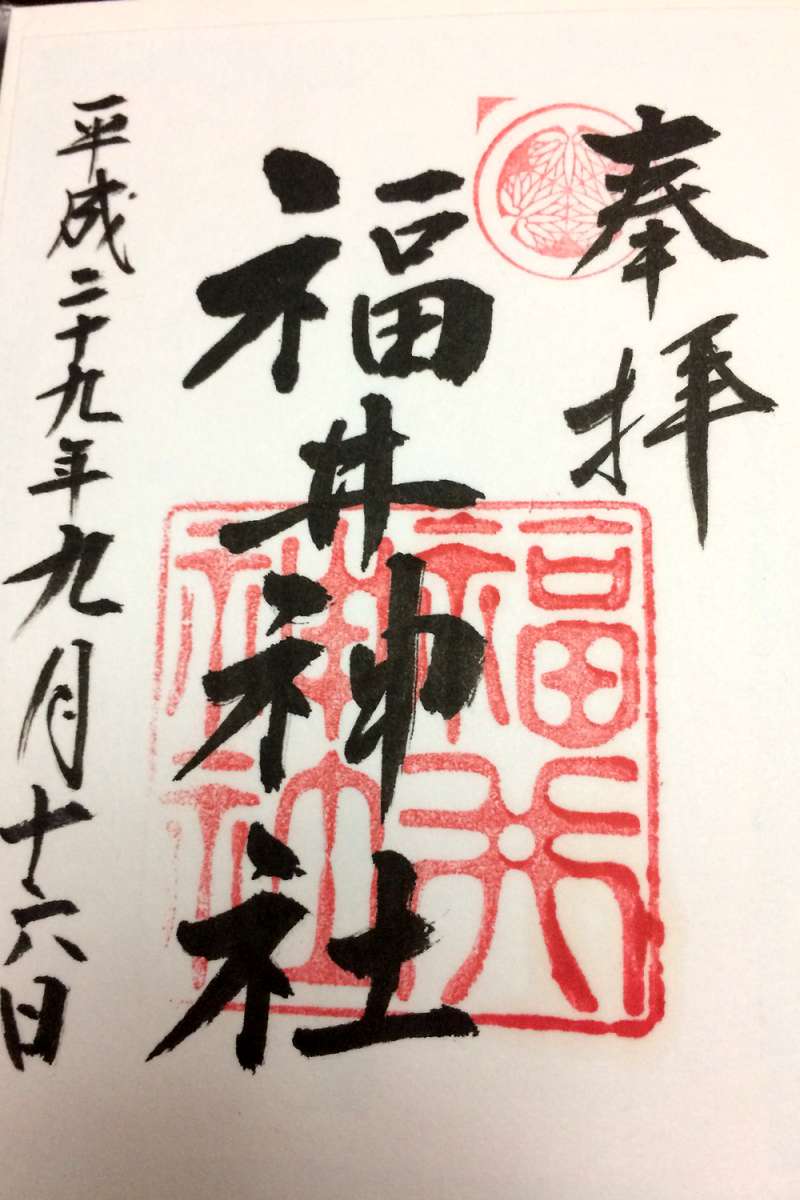 奉拝
福井神社
福井神社
平成二十九年九月十六日